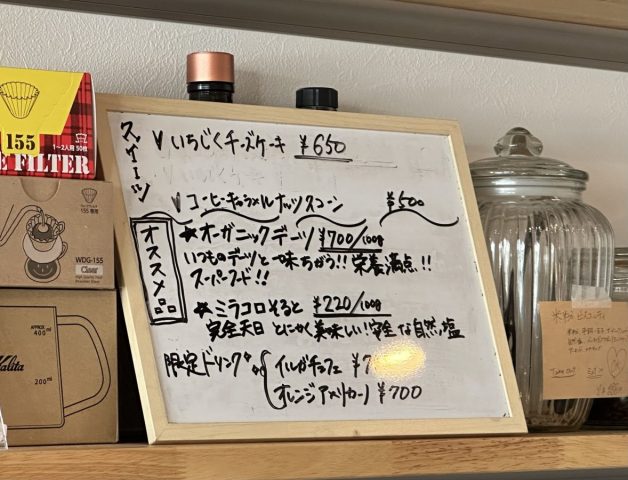 155
1~2人用 50枚
E FILTER
155
WDG-155
Clear
APPROX
400ml
200ml
Kalita
スイーツ
いちじくチーズケーキ ¥650
コーヒーキャラメルナッツスコーン ¥500
オススメ品
★オーガニックデーツ ¥700/100g
いつものデーツと一味ちがう!! 栄養満点!!
スーパーフード!!
★ミラコロそると ¥220/100g
完全天日 とにかく美味しい!安全な自然塩
限定ドリンク
イルガチェフェ ¥7
オレンジアメリカーノ ¥700
米粉ビスコッティ
Take Out
Eat in